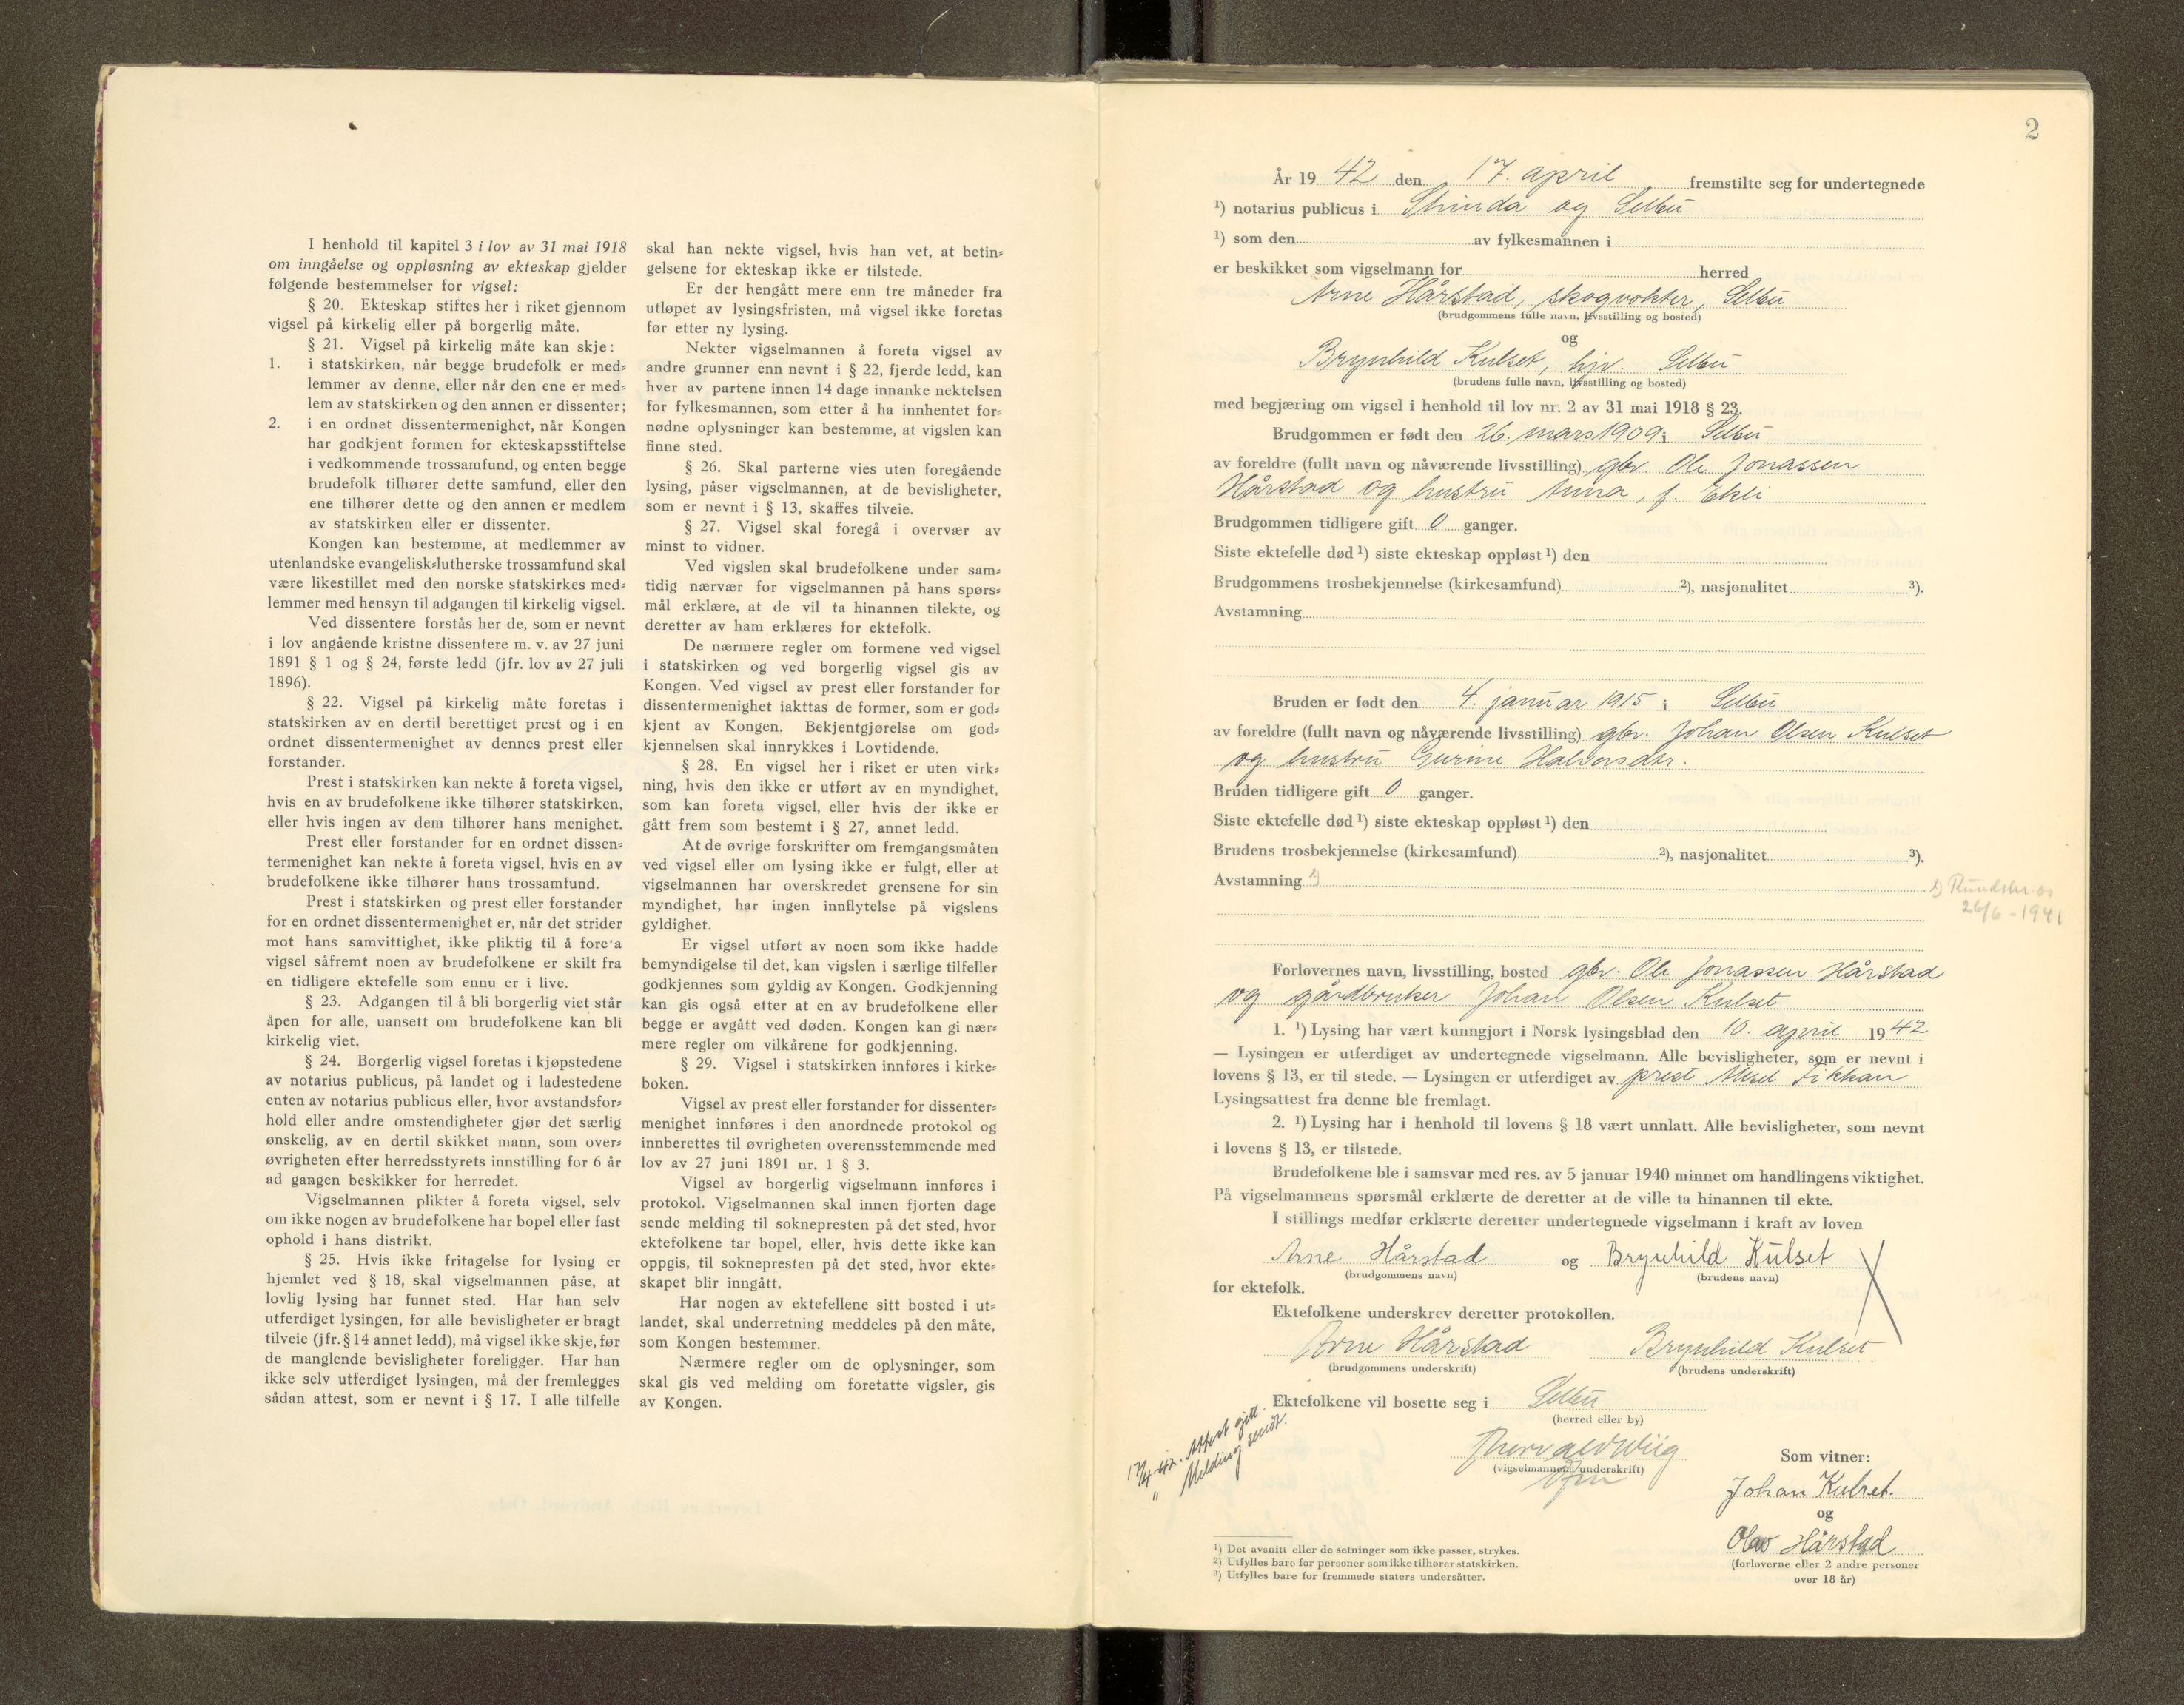 I henhold til kapitel 3 i lov av 31 mai 1918
om inngåelse og oppløsning av ekteskap gjelder
følgende bestemmelser for vigsel:
§ 20. Ekteskap stiftes her i riket gjennom
vigsel på kirkelig eller på borgerlig måte.
§ 21. Vigsel på kirkelig måte kan skje:
1. i statskirken, når begge brudefolk er med-
lemmer av denne, eller når den ene er med-
lem av statskirken og den annen er dissenter;
2. i en ordnet dissentermenighet, når Kongen
har godkjent formen for ekteskapsstiftelse
i vedkommende trossamfund, og enten begge
brudefolk tilhører dette samfund, eller den
ene tilhører dette og den annen er medlem
av statskirken eller er dissenter.
Kongen kan bestemme, at medlemmer av
utenlandske evangelisk-lutherske trossamfund skal
være likestillet med den norske statskirkes med-
lemmer med hensyn til adgangen til kirkelig vigsel.
Ved dissentere forstås her de, som er nevnt
i lov angående kristne dissentere m. v. av 27 juni
1891 § 1 og § 24, første ledd (jfr. lov av 27 juli
1896).
§ 22. Vigsel på kirkelig måte foretas i
statskirken av en dertil berettiget prest og i en
ordnet dissentermenighet av dennes prest eller
forstander.
Prest i statskirken kan nekte å foreta vigsel,
hvis en av brudefolkene ikke tilhører statskirken,
eller hvis ingen av dem tilhører hans menighet.
Prest eller forstander for en ordnet dissen-
termenighet kan nekte å foreta vigsel, hvis en av
brudefolkene ikke tilhører hans trossamfund.
Prest i statskirken og prest eller forstander
for en ordnet dissentermenighet er, når det strider
mot hans samvittighet, ikke pliktig til å fore'a
vigsel såfremt noen av brudefolkene er skilt fra
en tidligere ektefelle som ennu er i live.
§ 23. Adgangen til å bli borgerlig viet står
åpen for alle, uansett om brudefolkene kan bli
kirkelig viet.
§ 24. Borgerlig vigsel foretas i kjøpstedene
av notarius publicus, på landet og i ladestedene
enten av notarius publicus eller, hvor avstandsfor-
hold eller andre omstendigheter gjør det særlig
ønskelig, av en dertil skikket mann, som over-
øvrigheten efter herredsstyrets innstilling for 6 år
ad gangen beskikker for herredet.
Vigselmannen plikter å foreta vigsel, selv
om ikke nogen av brudefolkene har bopel eller fast
ophold i hans distrikt.
§ 25. Hvis ikke fritagelse for lysing er
hjemlet ved § 18, skal vigselmannen påse, at
lovlig lysing har funnet sted. Har han selv
utferdiget lysingen, før alle bevisligheter er bragt
tilveie (jfr. § 14 annet ledd), må vigsel ikke skje, før
de manglende bevisligheter foreligger. Har han
ikke selv utferdiget lysingen, må der fremlegges
sådan attest, som er nevnt i § 17. I alle tilfelle
skal han nekte vigsel, hvis han vet, at betin-
gelsene for ekteskap ikke er tilstede.
Er der hengått mere enn tre måneder fra
utløpet av lysingsfristen, må vigsel ikke foretas
før etter ny lysing.
Nekter vigselmannen å foreta vigsel av
andre grunner enn nevnt i § 22, fjerde ledd, kan
hver av partene innen 14 dage innanke nektelsen
for fylkesmannen, som etter å ha innhentet for-
nødne oplysninger kan bestemme, at vigslen kan
finne sted.
§ 26. Skal parterne vies uten foregående
lysing, påser vigselmannen, at de bevisligheter,
som er nevnt i § 13, skaffes tilveie.
§ 27. Vigsel skal foregå i overvær av
minst to vidner.
Ved vigslen skal brudefolkene under sam-
tidig nærvær for vigselmannen på hans spørs-
mål erklære, at de vil ta hinannen tilekte, og
deretter av ham erklæres for ektefolk.
De nærmere regler om formene ved vigsel
i statskirken og ved borgerlig vigsel gis av
Kongen. Ved vigsel av prest eller forstander for
dissentermenighet iakttas de former, som er god-
kjent av Kongen. Bekjentgjørelse om god-
kjennelsen skal innrykkes i Lovtidende.
§ 28. En vigsel her i riket er uten virk-
ning, hvis den ikke er utført av en myndighet,
som kan foreta vigsel, eller hvis der ikke er
gått frem som bestemt i § 27, annet ledd.
At de øvrige forskrifter om fremgangsmåten
ved vigsel eller om lysing ikke er fulgt, eller at
vigselmannen har overskredet grensene for sin
myndighet, har ingen innflytelse på vigslens
gyldighet.
Er vigsel utført av noen som ikke hadde
bemyndigelse til det, kan vigslen i særlige tilfeller
godkjennes som gyldig av Kongen. Godkjenning
kan gis også etter at en av brudefolkene eller
begge er avgått ved døden. Kongen kan gi nær-
mere regler om vilkårene for godkjenning.
§ 29. Vigsel i statskirken innføres i kirke-
boken.
Vigsel av prest eller forstander for dissenter-
menighet innføres i den anordnede protokol og
innberettes til øvrigheten overensstemmende med
lov av 27 juni 1891 nr. 1 § 3.
Vigsel av borgerlig vigselmann innføres i
protokol. Vigselmannen skal innen fjorten dage
sende melding til soknepresten på det sted, hvor
ektefolkene tar bopel, eller, hvis dette ikke kan
oppgis, til soknepresten på det sted, hvor ekte-
skapet blir inngått.
Har nogen av ektefellene sitt bosted i ut-
landet, skal underretning meddeles på den måte,
som Kongen bestemmer.
Nærmere regler om de oplysninger, som
skal gis ved melding om foretatte vigsler, gis
av Kongen.
2
År 19 42 den 17. april fremstilte seg for undertegnede
1) notarius publicus i Strinda og Selbu
1) som den av fylkesmannen i
er beskikket som vigselmann for herred
Arne Hårstad, skogvokter, Selbu
(brudgommens fulle navn, livsstilling og bosted)
og
Brynhild Kulset, hjv. Selbu
(brudens fulle navn, livsstilling og bosted)
med begjæring om vigsel i henhold til lov nr. 2 av 31 mai 1918 § 23.
Brudgommen er født den 26. mars 1909 i Selbu
av foreldre (fullt navn og nåværende livsstilling) gbr. Ole Jonassen
Hårstad og hustru Anna, f. Ekli
Brudgommen tidligere gift 0 ganger.
Siste ektefelle død 1) siste ekteskap oppløst 1) den
Brudgommens trosbekjennelse (kirkesamfund) 2), nasjonalitet 3).
Avstamning
Bruden er født den 4. januar 1915 i Selbu
av foreldre (fullt navn og nåværende livsstilling) gbr. Johan Olsen Kulset
og hustru Gurine Halvorsdtr.
Bruden tidligere gift 0 ganger.
Siste ektefelle død 1) siste ekteskap oppløst 1) den
Brudens trosbekjennelse (kirkesamfund) 2), nasjonalitet 3).
Avstamning 1)
1) Rundskr. av
26/6 - 1941
Forlovernes navn, livsstilling, bosted gbr. Ole Jonassen Hårstad
og gårdbruker Johan Olsen Kulset
1. 1) Lysing har vært kunngjort i Norsk lysingsblad den 10. april 1942
— Lysingen er utferdiget av undertegnede vigselmann. Alle bevisligheter, som er nevnt i
lovens § 13, er til stede. — Lysingen er utferdiget av prest Aksel Fikkan
Lysingsattest fra denne ble fremlagt.
2. 1) Lysing har i henhold til lovens § 18 vært unnlatt. Alle bevisligheter, som nevnt
i lovens § 13, er tilstede.
Brudefolkene ble i samsvar med res. av 5 januar 1940 minnet om handlingens viktighet.
På vigselmannens spørsmål erklærte de deretter at de ville ta hinannen til ekte.
I stillings medfør erklærte deretter undertegnede vigselmann i kraft av loven
Arne Hårstad og Brynhild Kulset
(brudgommens navn) (brudens navn)
for ektefolk.
Ektefolkene underskrev deretter protokollen.
Arne Hårstad Brynhild Kulset
(brudgommens underskrift) (brudens underskrift)
Ektefolkene vil bosette seg i Selbu
(herred eller by)
17/4-42. Attest gitt.
" Melding sendt.
Thorvald Wiig
(vigselmannens underskrift)
Som vitner:
Johan Kulset.
og
Olav Hårstad
(forloverne eller 2 andre personer
over 18 år)
1) Det avsnitt eller de setninger som ikke passer, strykes.
2) Utfylles bare for personer som ikke tilhører statskirken.
3) Utfylles bare for fremmede staters undersåtter.